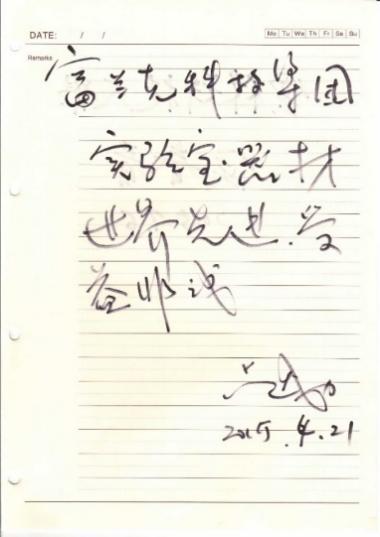 DATE: / /
Mo Tu We Th Fr Sa Su
Remarks
富兰克科技集团
实验室器材
世界先进.受
益
2015.4.21